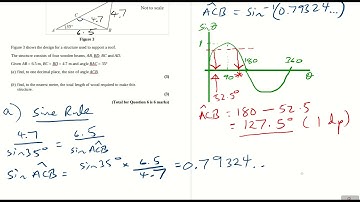 4.7
4.7
6.5
Not to scale
Figure 3
Figure 3 shows the design for a structure used to support a roof.
The structure consists of four wooden beams, AB, BD, BC and AD.
Given AB = 6.5 m, BC = BD = 4.7 m and angle BAC = 35°
(a) find, to one decimal place, the size of angle ACB.
(3)
(b) find, to the nearest metre, the total length of wood required to make this structure.
(3)
(Total for Question 6 is 6 marks)
a) Sine Rule
4.7 / sin35° = 6.5 / sin AĈB
sin AĈB = sin35° × 6.5 / 4.7 = 0.79324..
AĈB = sin⁻¹(0.79324...
sinθ
1
90
180
360
θ
52.5°
AĈB = 180 - 52.5
= 127.5° (1 dp)